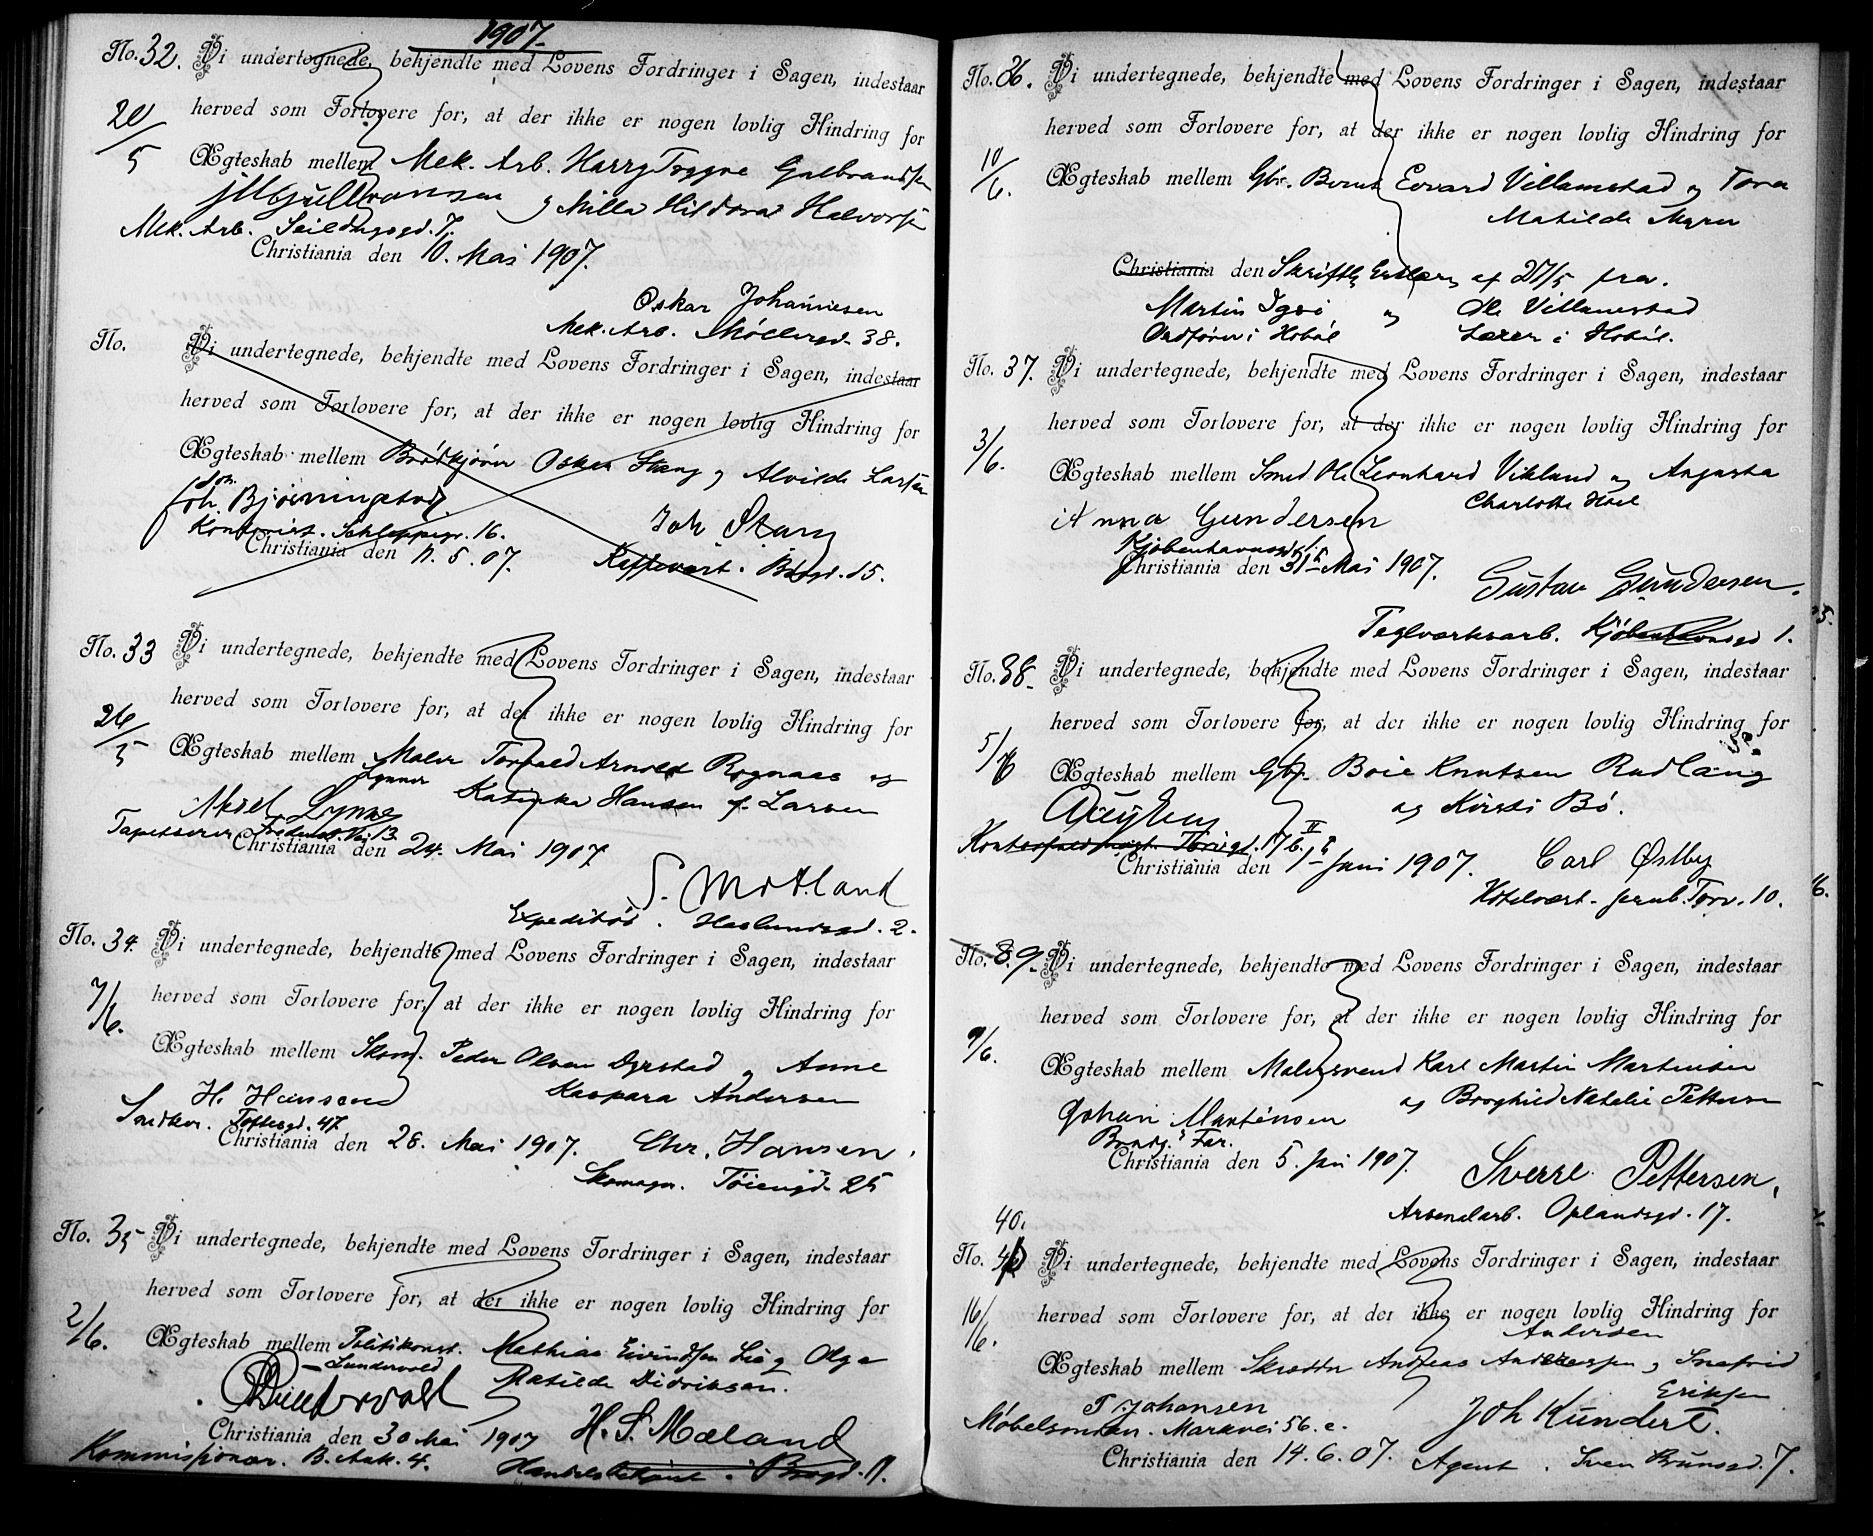 1907.
No. 32. Vi undertegnede, bekjendte med Lovens Fordringer i Sagen, indestaar
herved som Forlovere for, at der ikke er nogen lovlig Hindring for
20/5 Ægteskab mellem Mek. Arb. Harry Trygve Gulbrandsen
og Milla Hildora Halvorsen
Mek. Arb. Seildugsgd. 7.
Christiania den 10. Mai 1907.
Oskar Johannesen
Mek. Arb. Møllergd. 38.
No. Vi undertegnede, bekjendte med Lovens Fordringer i Sagen, indestaar
herved som Forlovere for, at der ikke er nogen lovlig Hindring for
Ægteskab mellem Brødkjører Oskar Stang og Alvilde Larsen
Joh. Bjørningstad
Kontorist. Schleppegr. 16. Joh Stang
Christiania den 11. 5. 07. Kaffevært. 15.
No. 33 Vi undertegnede, bekjendte med Lovens Fordringer i Sagen, indestaar
herved som Forlovere for, at der ikke er nogen lovlig Hindring for
26/5 Ægteskab mellem Maler Torvald Arnold Rognaas og
Lynner Katinka Hansen f. Larsen
Aksel Lynne
Tapetserer 13
Christiania den 24. Mai 1907
S. Motland
Expeditør. Haslumsgd. 2.
No. 34. Vi undertegnede, bekjendte med Lovens Fordringer i Sagen, indestaar
herved som Forlovere for, at der ikke er nogen lovlig Hindring for
7/6. Ægteskab mellem Skom. Peder Olsen Dyrstad og Anne
H. Hansen Kaspara Andersen
Toftesgd. 47
Christiania den 28. Mai 1907. Chr. Hansen.
Skomagr. Tøiengd. 25
No. 35 Vi undertegnede, bekjendte med Lovens Fordringer i Sagen, indestaar
herved som Forlovere for, at der ikke er nogen lovlig Hindring for
2/6. Ægteskab mellem Politikonst. Mathias Eivindsen Lie og Olga
Sundervold Matilde Didriksen.
Christiania den 30 Mai 1907 H. S. Mæland
Kommissjonær. B. Ank. 4.
No. 36. Vi undertegnede, bekjendte med Lovens Fordringer i Sagen, indestaar
herved som Forlovere for, at der ikke er nogen lovlig Hindring for
10/6. Ægteskab mellem Gbr. Bernt Edvard Villamstad og Tora
Matilde Myrer
Christiania den Skriftlig Erklær. af 27/5 fra.
Martin Igsi og Ole Villamstad
Ordfører i Hobøl Lærer i Hobøl.
No. 37. Vi undertegnede, bekjendte med Lovens Fordringer i Sagen, indestaar
herved som Forlovere for, at der ikke er nogen lovlig Hindring for
3/6. Ægteskab mellem Smed Ole Leonhard Vikland og Augusta
Charlotte Hoel
Anna Gundersen
Kjøbenhavnsgd. 1.
Christiania den 31te Mai 1907.
Gustav Gundersen.
Teglværksarb. Kjøbenhavnsgd 1.
No. 38. Vi undertegnede, bekjendte med Lovens Fordringer i Sagen, indestaar
herved som Forlovere for, at der ikke er nogen lovlig Hindring for
5/6 Ægteskab mellem Gbr. Boie Knutsen Rudläng
og Kirsti Bø.
Torvgd. 17b II
Christiania den 1te Juni 1907. Carl Østby
Hotelvært. Jernb. Torv. 10.
No. 39. Vi undertegnede, bekjendte med Lovens Fordringer i Sagen, indestaar
herved som Forlovere for, at der ikke er nogen lovlig Hindring for
9/6. Ægteskab mellem Malersvend Karl Martin Martinsen
og Borghild Natalie Pettersen
Johan Martinsen
Christiania den 5. Juni 1907.
Sverre Pettersen,
Arsenalarb. Oplandsgd. 17.
40.
No. 40 Vi undertegnede, bekjendte med Lovens Fordringer i Sagen, indestaar
herved som Forlovere for, at der ikke er nogen lovlig Hindring for
Andersen
16/6. Ægteskab mellem Skrædder Andreas Andreassen og Snefrid
Eriksen
T Johansen Joh Kundert.
Møbelsnedker. Markvei 56. c.
Christiania den 14. 6. 07. Agent. Sven Brunsgd. 7.